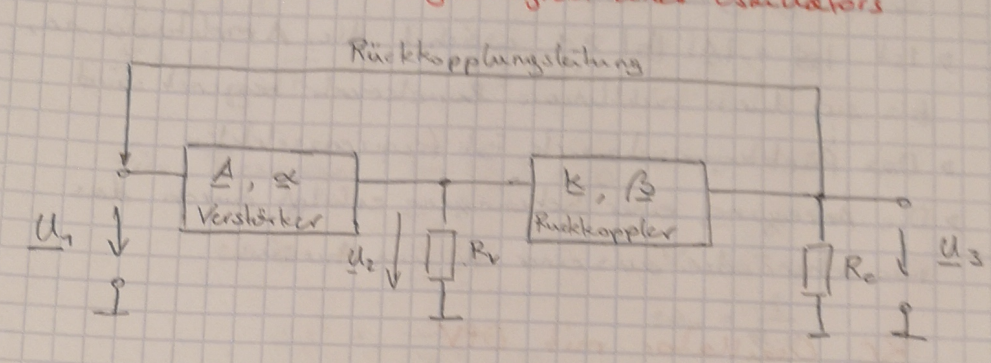 Oszillators
Rückkopplungsleitung
A, α
Verstärker
k, β
Rückkoppler
U1
U2
Rv
Re
U3